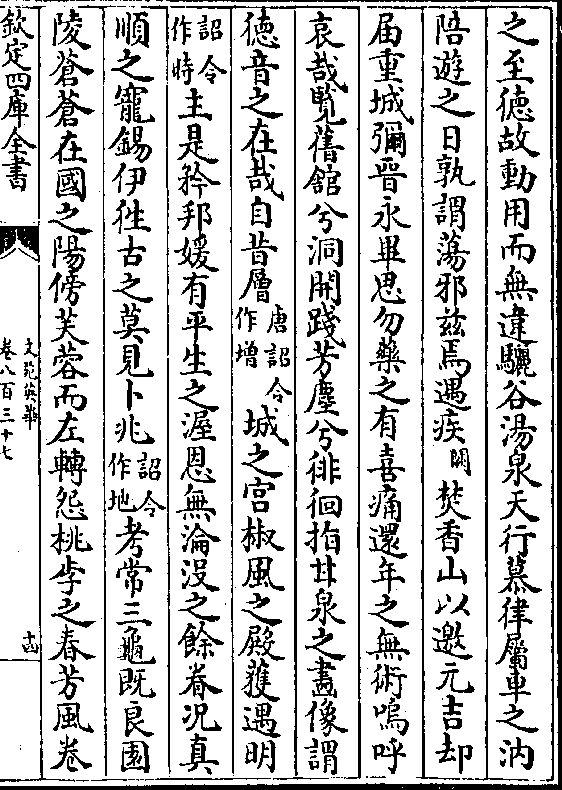 之至徳故動用而無違驪谷湯泉天行慕律屬車之汭
陪遊之日孰謂蕩邪兹焉遘疾闕焚香山以邀元吉却
届重城彌晉永畢思勿藥之有喜痛還年之無術嗚呼
哀哉覧舊舘兮洞開踐芳塵兮徘徊指甘泉之畫像謂
徳音之在哉自昔層唐詔令作增城之宫椒風之殿獲遇明
詔令作時主是矜邦媛有平生之渥恩無淪没之餘眷况真
順之寵錫伊徃古之莫見卜兆詔令作地考常三龜既良園
陵蒼蒼在國之陽傍芙蓉而左轉怨桃李之春芳風卷
欽定四庫全書
文苑英華
卷八百三十七
十四